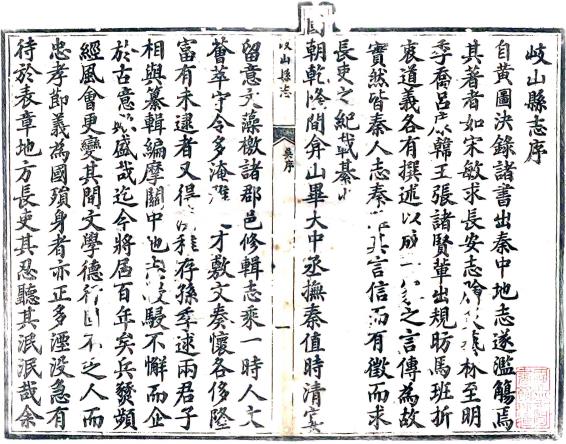 岐山縣志序
自黃圖決錄諸書出秦中地志遂濫觴焉
其著者如宋敏求長安志林至明
季喬呂韓王張諸賢輩出規昉馬班折
衷道義各有撰述以成一之言傳為故
實然皆秦人志秦其言信而有徵而求
長吏之紀載綦
國朝乾隆間弇山畢大中丞撫秦值時清宴
岐山縣志
吳序
一
留意文藻檄諸郡邑修輯志乘一時人文
薈萃守令多淹才敷文奏懷各侈隆
富有未逮者又得稚存孫季逑兩君子
相與纂輯編摩關中也駸不懈而企
於古意盛哉迄今將屆百年矣兵燹頻
經風會更變其間文學德行固不乏人而
忠孝節義為國殞身者亦正多湮沒急有
待於表章地方長吏其忍聽其泯泯哉余